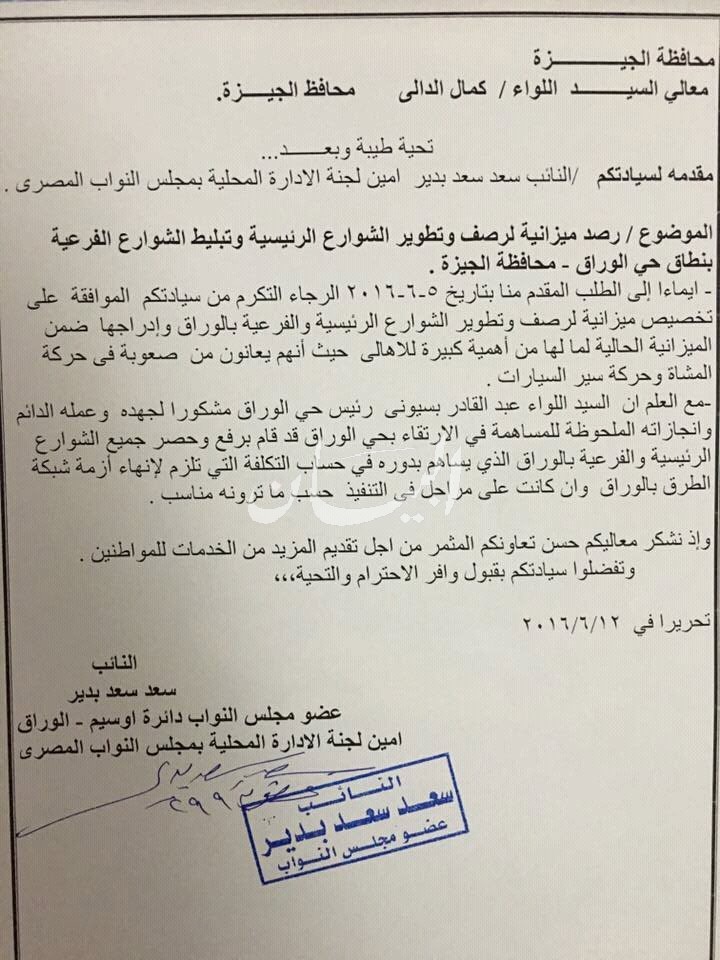 محافظة الجيـــــزة
معالي السيــــد اللواء / كمال الدالى محافظ الجيــزة.
تحية طيبة وبعــد...
مقدمه لسيادتكم /النائب سعد سعد بدير امين لجنة الادارة المحلية بمجلس النواب المصرى .
الموضوع / رصد ميزانية لرصف وتطوير الشوارع الرئيسية وتبليط الشوارع الفرعية
بنطاق حي الوراق - محافظة الجيزة .
- ايماءا إلى الطلب المقدم منا بتاريخ ٥-٦-٢٠١٦ الرجاء التكرم من سيادتكم الموافقة على
تخصيص ميزانية لرصف وتطوير الشوارع الرئيسية والفرعية بالوراق وإدراجها ضمن
الميزانية الحالية لما لها من أهمية كبيرة للاهالى حيث أنهم يعانون من صعوبة فى حركة
المشاة وحركة سير السيارات .
-مع العلم ان السيد اللواء عبد القادر بسيونى رئيس حي الوراق مشكورا لجهده وعمله الدائم
وانجازاته الملحوظة للمساهمة في الارتقاء بحي الوراق قد قام برفع وحصر جميع الشوارع
الرئيسية والفرعية بالوراق الذي يساهم بدوره في حساب التكلفة التي تلزم لإنهاء أزمة شبكة
الطرق بالوراق وان كانت على مراحل فى التنفيذ حسب ما ترونه مناسب .
وإذ نشكر معاليكم حسن تعاونكم المثمر من اجل تقديم المزيد من الخدمات للمواطنين .
وتفضلوا سيادتكم بقبول وافر الاحترام والتحية،،،
تحريرا في ٢٠١٦/٦/١٢
النائب
سعد سعد بدير
عضو مجلس النواب دائرة اوسيم - الوراق
امين لجنة الادارة المحلية بمجلس النواب المصرى
النائب
سعد سعد بدير
عضو مجلس النواب